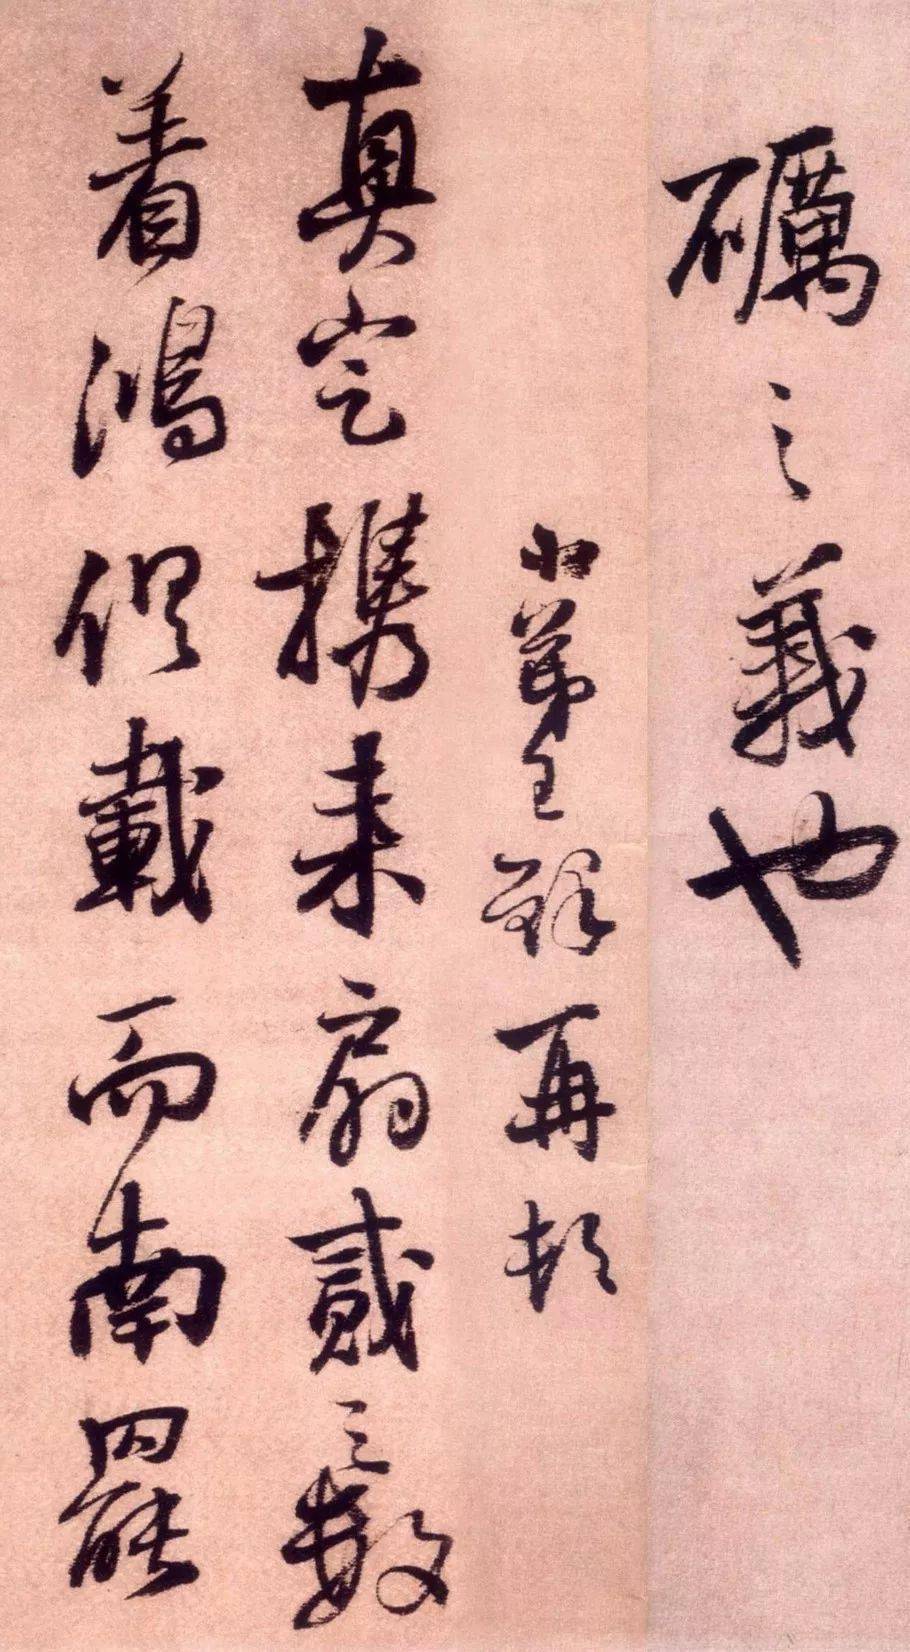 礪之義也
小弟王鐸再頓
真定携来扇貳之數
着鴻俱載而南罷